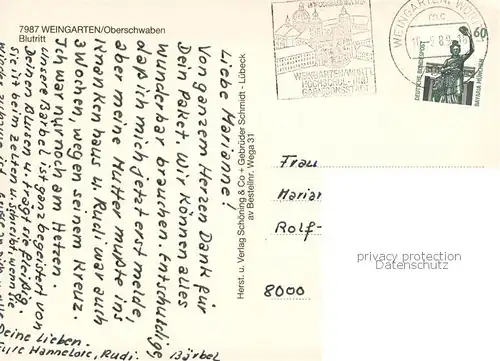 7987 WEINGARTEN/Oberschwaben
Blutritt
Liebe Marianne!
Von ganzem Herzen Dank für
Dein Paket. Wir können alles
wunderbar brauchen. Entschuldige
daß ich mich jetzt erst melde,
aber meine Mutter mußte ins
Krankenhaus u. Rudi war auch
3 Wochen, wegen seinem Kreuz.
Ich war nur noch am Hetzen.
Unsere Bärbel ist ganz begeistert von
Deinen Blusen u. trägt sie fleißig.
sie ist beim zelten u. schreibt wenn sie
Deine Lieben.
Eure Hannelore, Rudi. Bärbel
Herst. u. Verlag Schöning & Co + Gebrüder Schmidt - Lübeck
av Bestellnr. Wega 31
WEINGARTEN, WÜRTT
mc
60
DEUTSCHE BUNDESPOST
BAVARIA MÜNCHEN
Frau
Marian
Rolf-
8000
privacy protection
www.oldthing.de